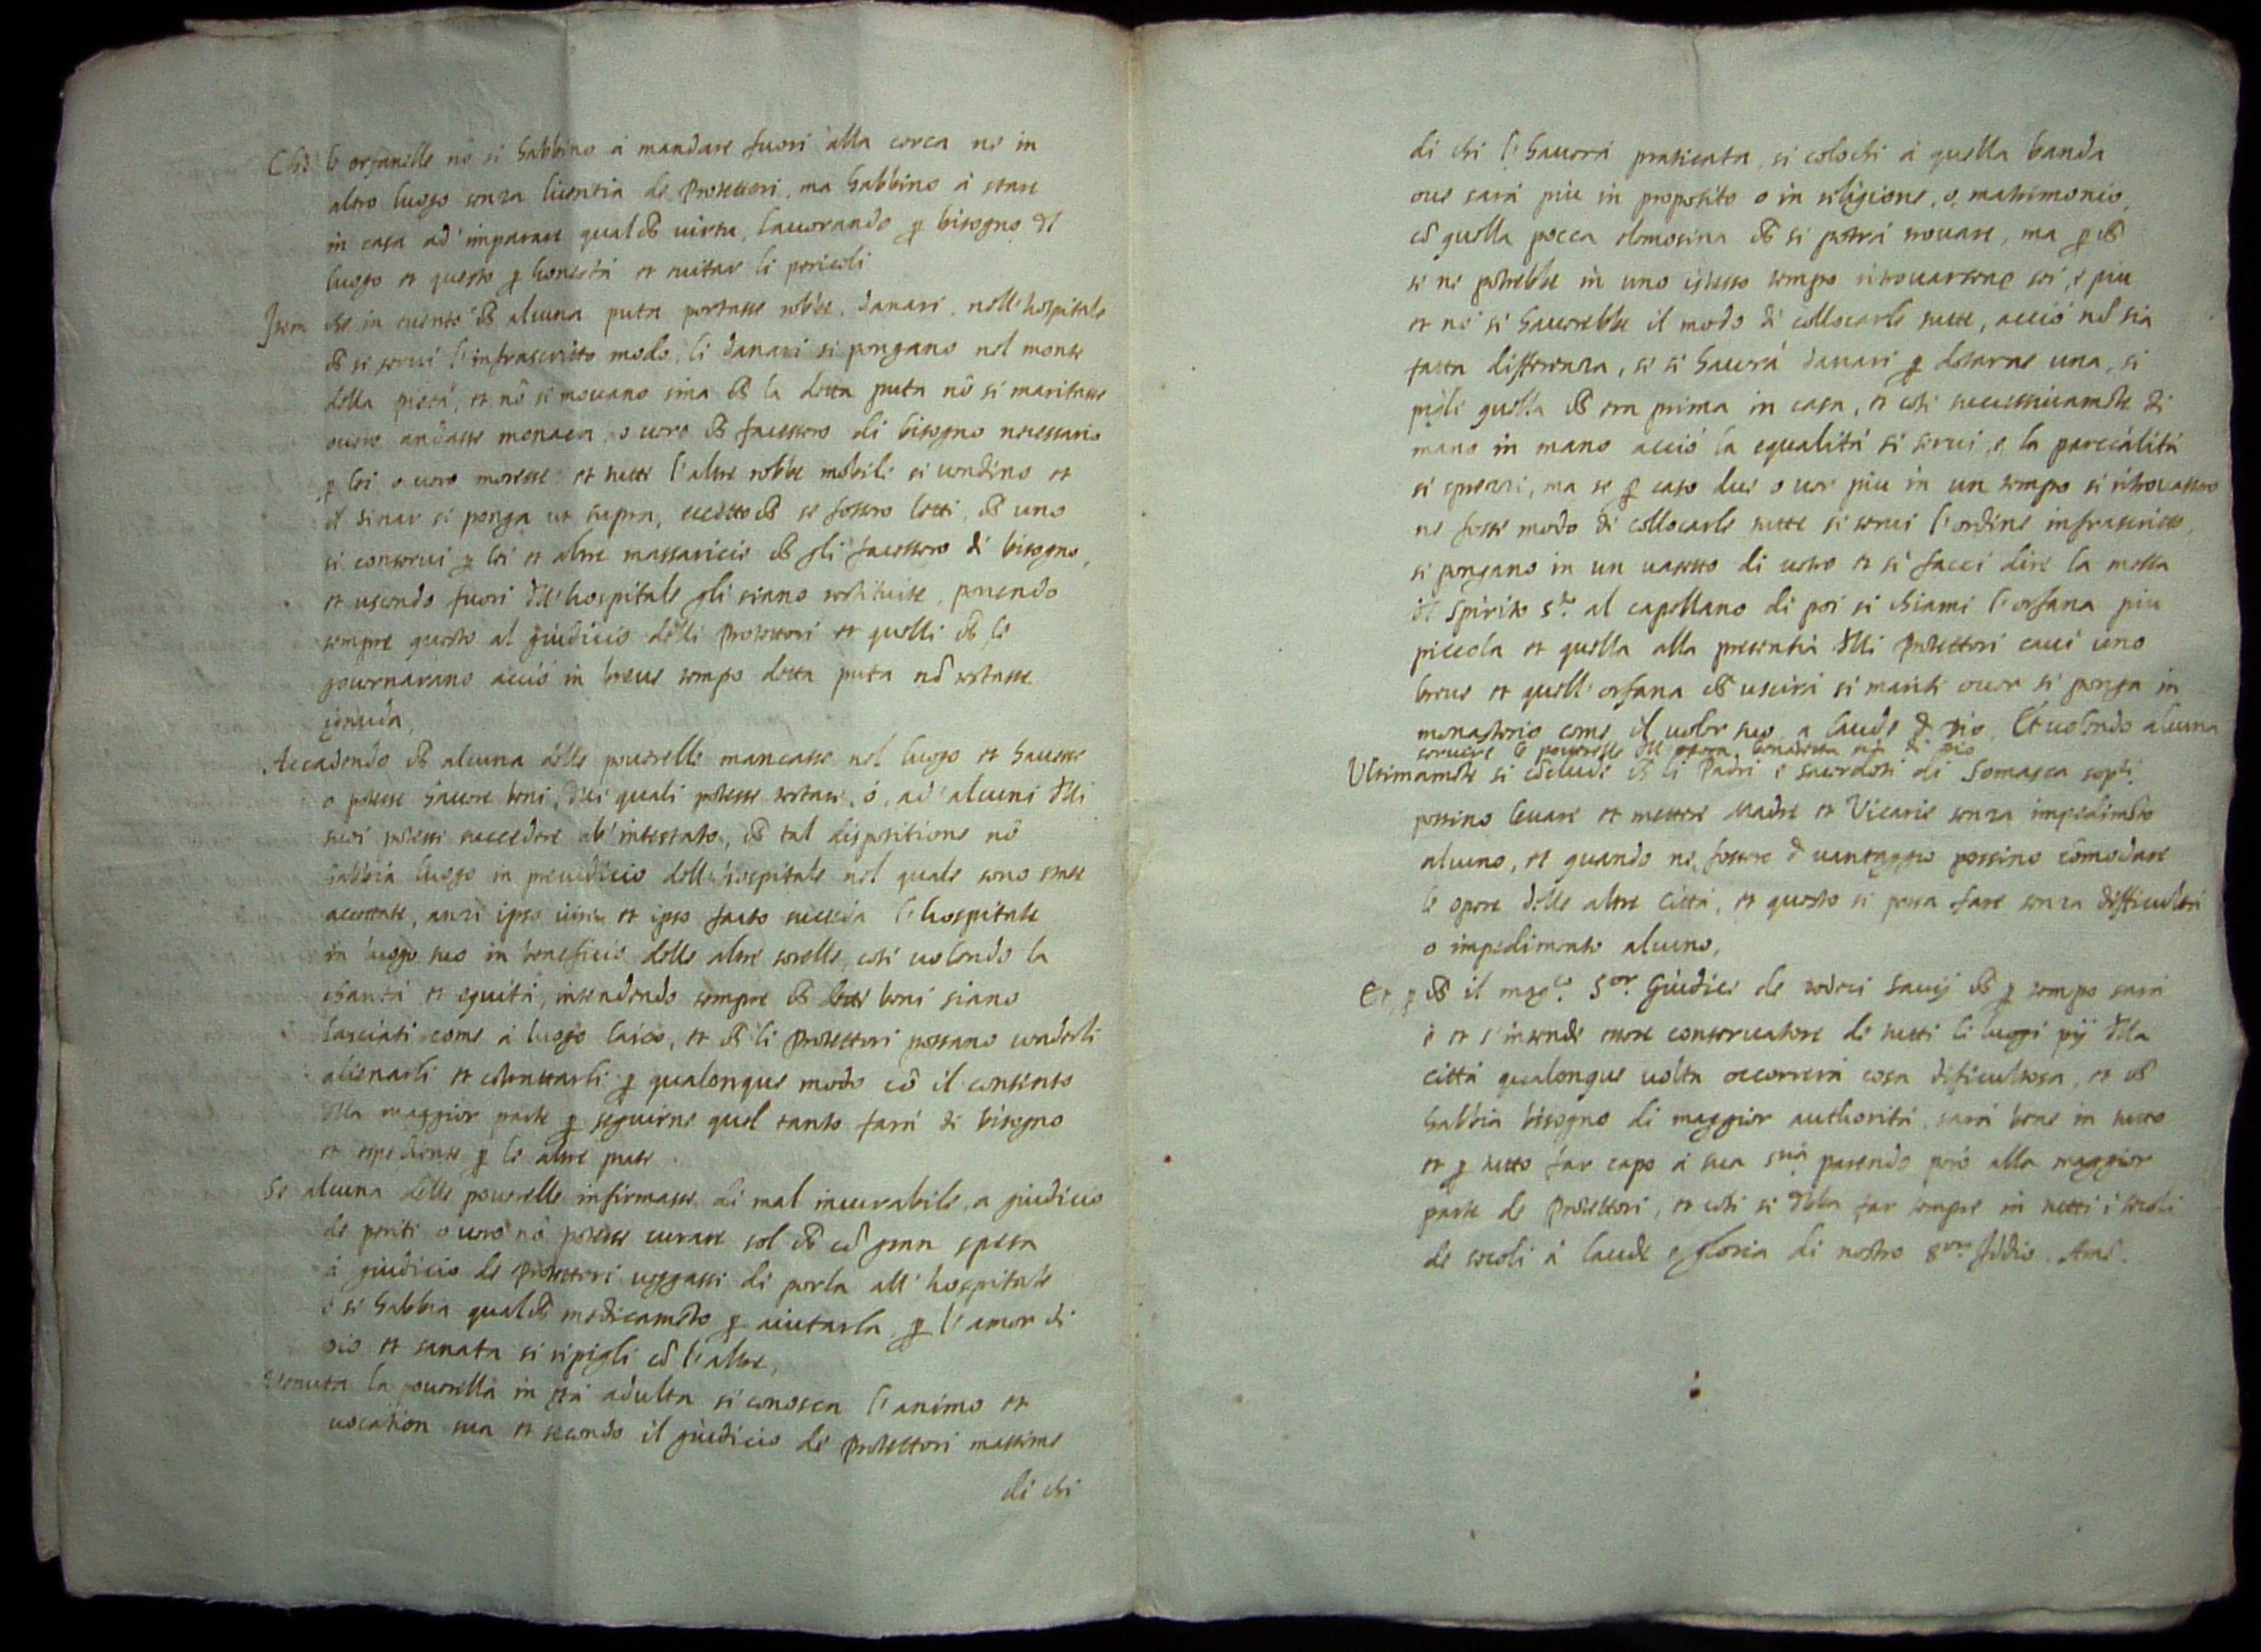 Che le orfanelle nõ si habbino à mandare fuori alla cerca ne in
altro luogo senza licentia de Protettori, ma habbino à stare
in casa ad' imparare qualche uirtu, lauorando p bisogno del
luogo et questo p honestà et euitar li pericoli
Item che in euento che alcuna puta portasse robbe, danari, nell'hospitale
che si serui l'infrascritto modo, li danari si pongano nel monte
della pietà, et nõ si mouano sina che la detta puta nõ si maritasse
ouero andasse monaca, o uero che facessero di bisogno necessario
p lei o uero moresse: et tutte l'altre robbe mobili si uendino et
il dinar si ponga ut supra, eccetto che se fossero letti, che uno
si conserui p lei et altre massaricie che gli facessero di bisogno,
et uscendo fuori dell'hospitale gli siano restituite, ponendo
sempre questo al giudicio delli Protettori et quelli che le
gouernarano acciò in breue tempo detta puta nõ restasse
ignuda,
Accadendo che alcuna delle pouerelle mancasse nel luogo et hauesse
o potesse hauere beni, dei quali potesse testare, ò, ad' alcuni delli
suoi potessi succedere ab' intestato, che tal dispositione nõ
habbia luogo in preiudicio dell'hospitale nel quale sono state
accettate, anzi ipso iure et ipso facto succeda l'hospitale
in luogo suo in beneficio delle altre sorelle, così uolendo la
charità et equità, intendendo sempre che detti beni siano
lasciati come à luogo laico, et che li Protettori possano uenderli
alienarli et contrattarli p qualonque modo cõ il consenso
della maggior parte p seguirne quel tanto farà di bisogno
et espediente p le altre pute
Se alcuna delle pouerelle infirmasse di mal incurabile, a giudicio
de periti o uero nõ potesse curare sol che cõ gran spesa
à giudicio de Protettori ueggassi di porla all' hospitale
o si habbia qualche medicamẽto p aiutarla p l'amor di
Dio et sanata si ripigli cõ l'altre,
Venuta la pouerella in età adulta si conosca l'animo et
uocation sua et secondo il giudicio de Protettori massime
di chi
di chi l'hauerà praticata si colochi à quella banda
oue sarà più in proposito o in religione, o, matrimonio,
cõ quella pocca elemosina che si potrà trouare, ma p che
se ne potrebbe in uno istesso tempo ritrouarsene sei, e piu
et nõ si hauerebbe il modo di collocarle tutte, acciò nõ sia
fatta differenza, se si hauerà danari p dotarne una, si
pigli quella che era prima in casa, et così successiuamẽte di
mano in mano acciò la equalità si serui, e la parcialità
si sprezzi, ma se p caso due o uer piu in un tempo si ritrouassero
ne fosse modo di collocarle tutte si serui l'ordine infrascritto,
si pongano in un uasetto di uetro et si facci dire la messa
del Spirito S.to al capellano di poi si chiami l'orfana piu
piccola et quella alla presentia delli Protettori caui uno
breue et quell' orfana che uscirà si mariti ouer si ponga in
monasterio come il uoler suo a laude de Dio, Et uolendo alcuna
seruire le pouerelle dell'opera,
Ultimamẽte si cõclude che li Padri e sacerdoti di Somasca sop.ti
possino leuare et mettere Madre et Vicarie senza impedimẽto
alcuno, et quando ne fossero d'uantaggio possino cõmodare
le opere delle altre Città, et questo si possa fare senza difficultà
o impedimento alcuno,
Et p che il mag.co S.or Giudice de dodeci Sauij che p tempo sarà
è et s'intende essere conseruatore de tutti li luoggi pij della
città qualonque uolta occorrerà cosa dificultosa, et che
habbia bisogno di maggior authorità, sarà bene in tutto
et p tutto far capo à sua S.ria parendo però alla maggior
parte de Protettori, et così si debba far sempre in tutti i secoli
de secoli à laude e gloria di nostro S.re Iddio. Amẽ.